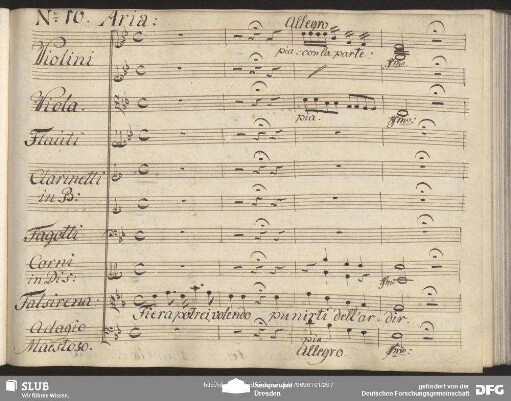 No: 10. Aria:
Allegro
Violini
pia: con la parte:
ffmo
Viola.
pia.
ffmo:
Flauti
Clarinetti
in B:
Fagotti
Corni
in Dis:
ffmo
Falsirena:
Fiera potrei volendo punirti dell'ar - dir.
Adagio
Maestoso.
pia
Allegro
ffmo:
SLUB
Wir führen Wissen.
Dresden
gefördert von der
Deutschen Forschungsgemeinschaft
DFG